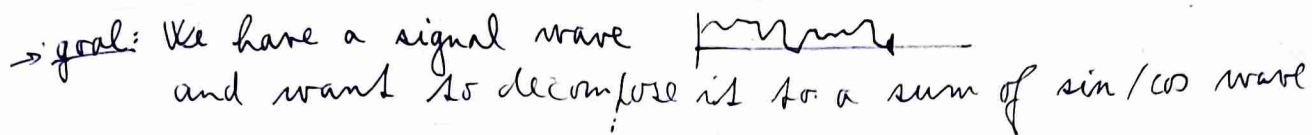 → goal: We have a signal wave
and want to decompose it to a sum of sin/cos wave